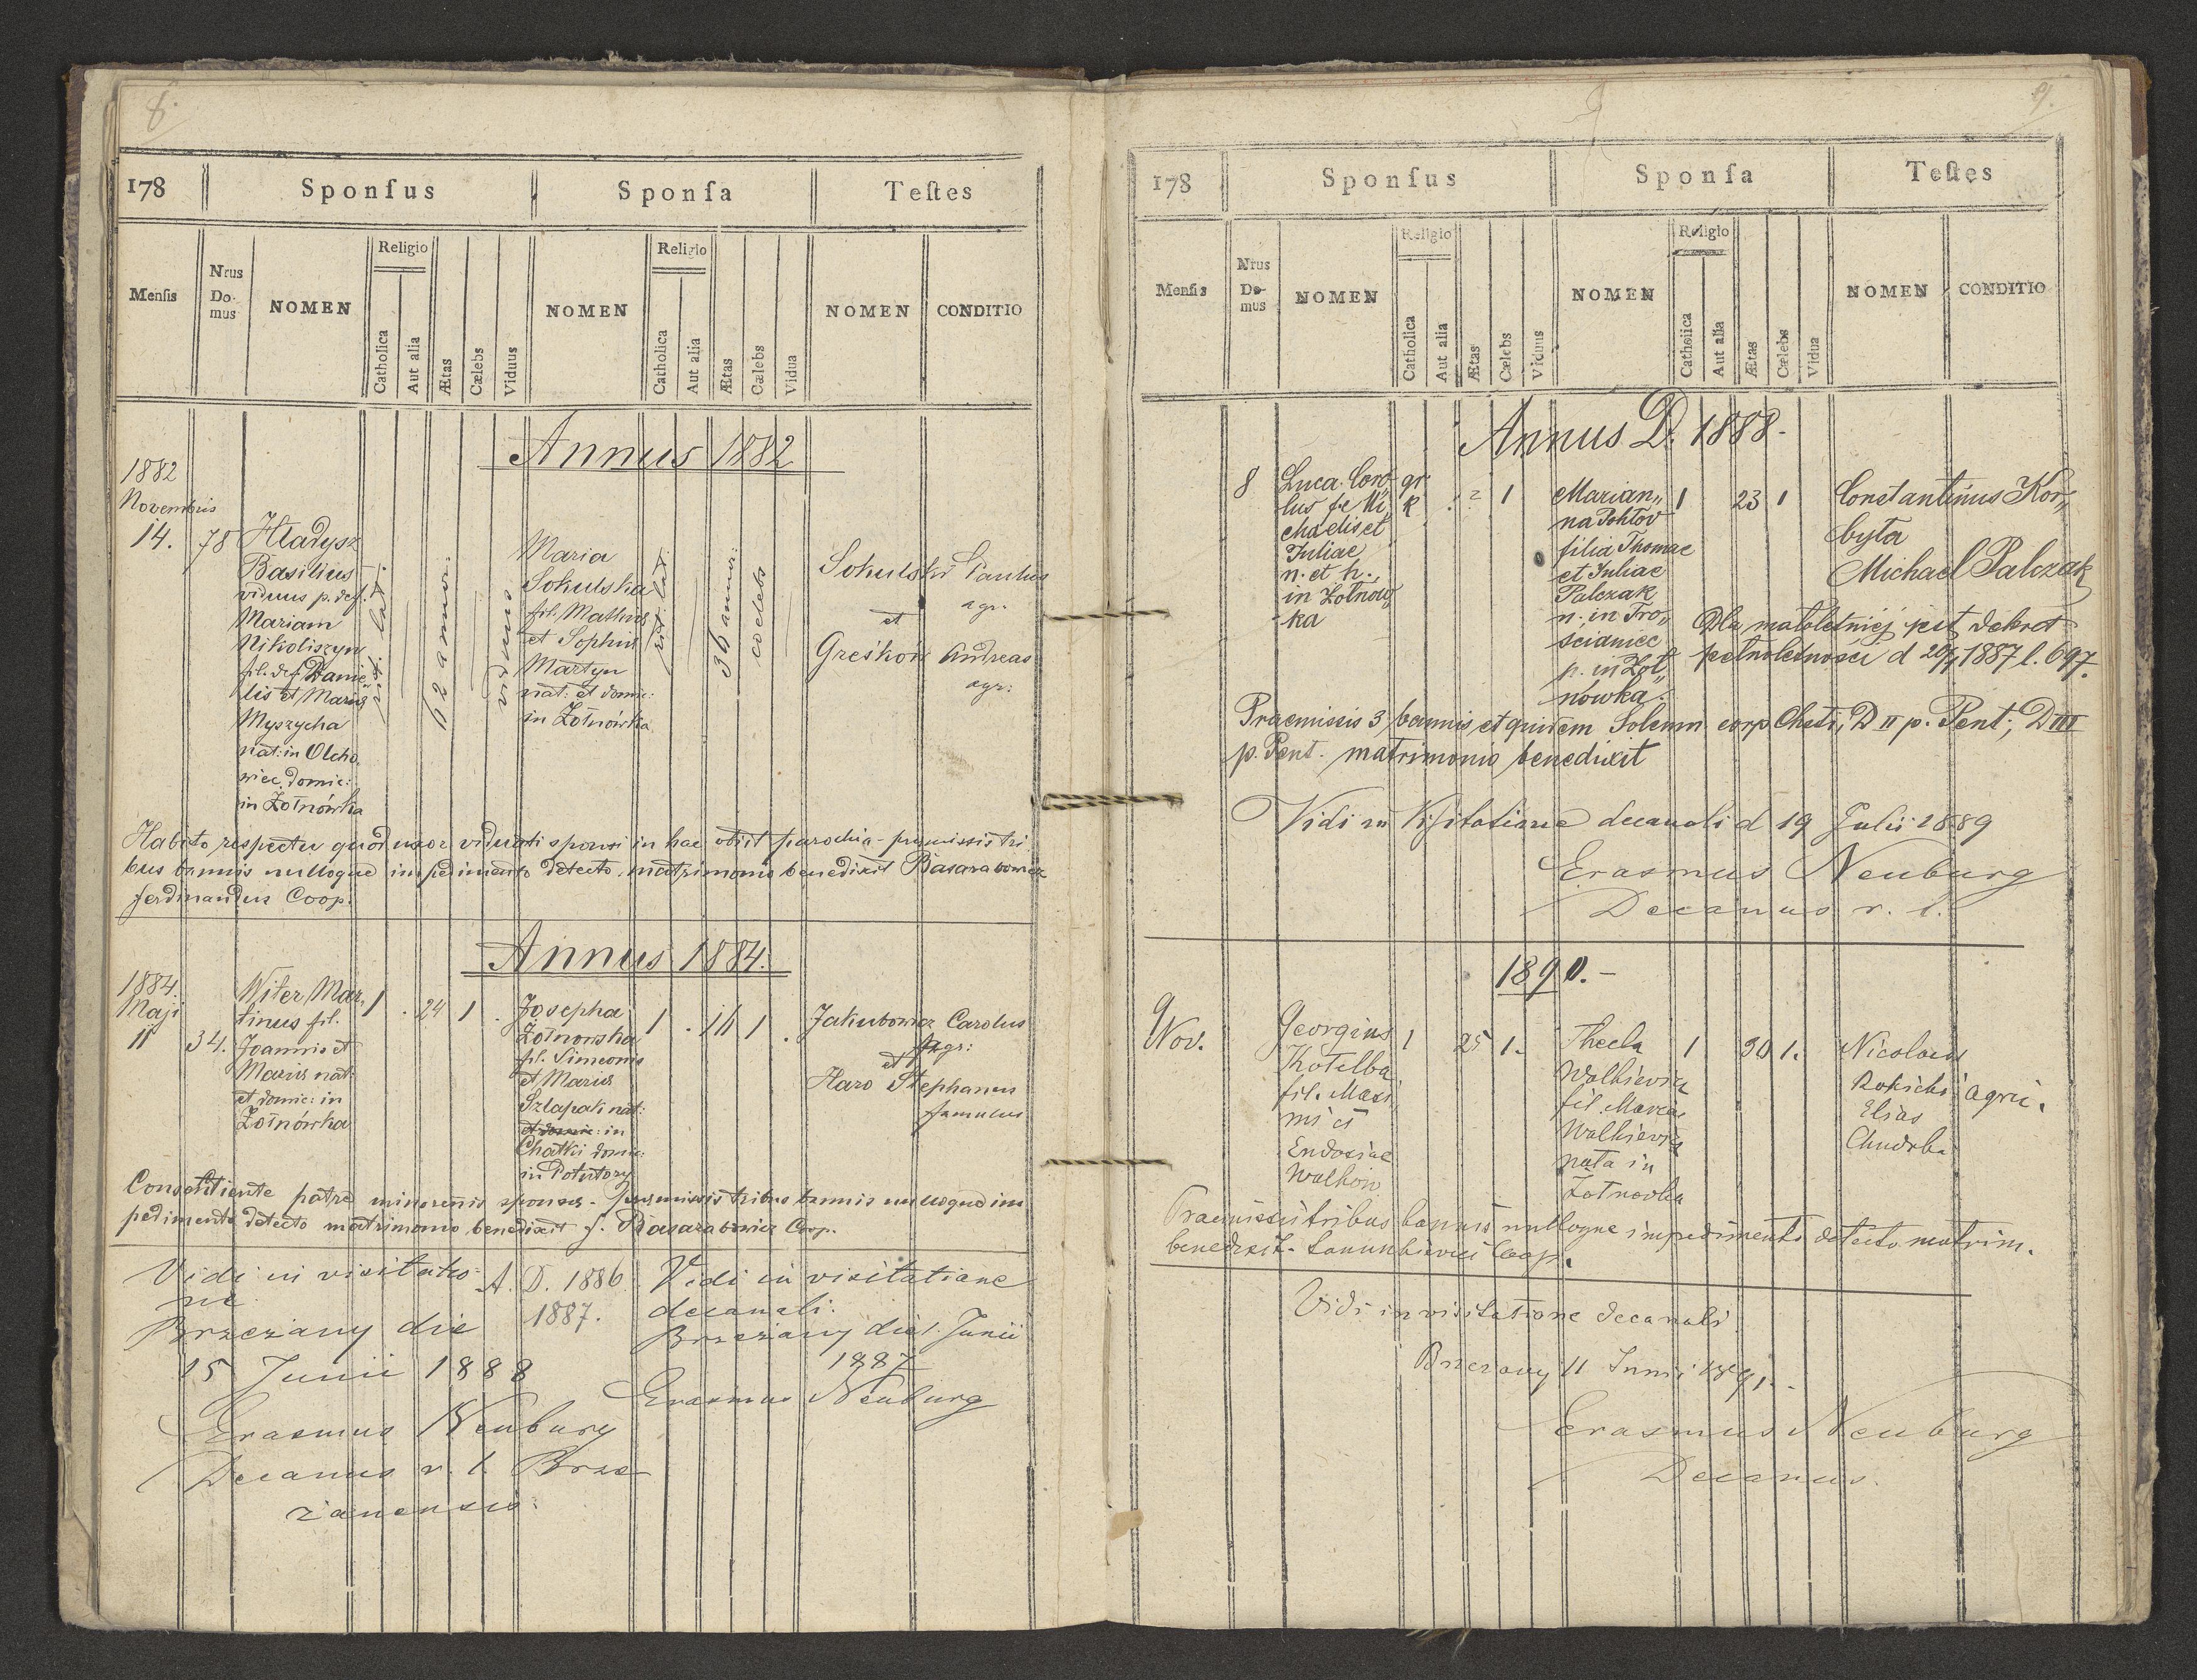 8.
178 Sponsus Sponsa Testes
Religio Religio
Mensis Nrus Do- mus NOMEN Catholica Aut alia Ætas Cælebs Viduus NOMEN Catholica Aut alia Ætas Cælebs Vidua NOMEN CONDITIO
Annus 1882
1882
Novembris
14. 78
Hladysz
Basilius
viduus p. def.
Mariam
Nikoliszyn
fil. def. Danie-
lis et Mariæ
Myszycha
nat: in Olcho-
wiec domic:
in Żołnówka
rit. lat.
62 annor:
viduus
Maria
Sokulska
fil. Mathiæ
et Sophiæ
Martyn
nat: et domic:
in Żołnówka
rit. lat.
36 annor:
coelebs
Sokulski Paulus
agr.
et
Greśkow Andreas
agr:
Habito respectu quod uxor viduati sponsi in hac obiit parochia - præmissis tri
bus bannis nulloque impedimento detecto, matrimonio benedixit Basarabowicz
Ferdinandus Coop.
Annus 1884.
1884.
Maji
11 34.
Witer Mar-
tinus fil.
Joannis et
Mariæ nat:
et domic: in
Żołnówka
1 . 24 1 .
Josepha
Żołnowska
fil. Simeonis
et Mariæ
Szlapak nat:
et domic: in
Chatki domic:
in Potutory
1 . 16 1 .
Jakubowicz Carolus
agr:
et
Haro Stephanus
famulus
Consentiente patre minorennis sponsæ - præmissis tribus bannis nulloque im
pedimento detecto matrimonio benedixit f. Basarabowicz Coop.
Vidi in visitatio-
ne
Brzeżany die
15 Junii 1888
Erasmus Neuburg
Decanus r. l. Brze
żanensis.
A. D. 1886.
1887.
Vidi in visitatione
decanali.
Brzeżany die 1. Junii
1887
Erasmus Neuburg
9.
178 Sponsus Sponsa Testes
Religio Religio
Mensis Nrus Do- mus NOMEN Catholica Aut alia Ætas Cælebs Viduus NOMEN Catholica Aut alia Ætas Cælebs Vidua NOMEN CONDITIO
Annus D. 1888.
8
Luca
chaelis et
Juliae
n. et h.
in Żołnow
-ka
gr.
k
1
Marian„
na
filia Thomae
et Juliae
Palczak
n. in Tro„
scianiec
p. in Żoł„
nowka.
1 23 1
Constantinus Kor„
byta
Michael Palczak
Dla małoletniej jest dekret
pełnoletności d 20/1 1887 l. 697.
Praemissis 3 bannis et quidem Solemn corp Chsti, D II p. Pent., D III
p. Pent. matrimonio benedixit
Vidi in Visitatione decanali d 19 Julii 1889
Erasmus Neuburg
Decanus r. l.
1890.-
9
Nov.
Georgius
Kotelba
fil. Maxi
mi et
Eudosiae
Walkow
1 25 1.
Thecla
Walkiewicz
fil. Mariae
Walkiewicz
nata in
Żołnowka
1 30 1.
Nicolaus
Rokicki agric.
Elias
Praemissis tribus bannis nulloque impedimento detecto matrim.
benedixit Coop.
Vidi in visitatione decanali
Brzeżany 11 Junii 1891.-
Erasmus Neuburg
Decanus.